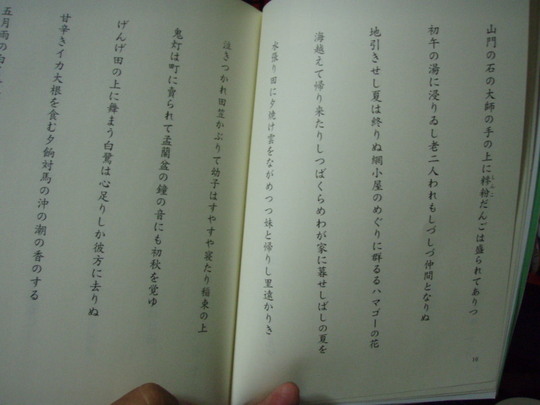 山門の石の大師の手の上に糝粉だんごは盛られてありつ
初午の湯に浸りゐし老二人われもしづしづ仲間となりぬ
地引きせし夏は終りぬ網小屋のめぐりに群るるハマゴーの花
海越えて帰り来たりしつばくらめわが家に暮せしばしの夏を
水張り田に夕焼け雲をながめつつ妹と帰りし里遠かりき
泣きつかれ田笠かぶりて幼子はすやすや寝たり稲束の上
鬼灯は町に売られて盂蘭盆の鐘の音にも初秋を覚ゆ
げんげ田の上に舞まう白鷺は心足りしか彼方に去りぬ
甘辛きイカ大根を食む夕餉対馬の沖の潮の香のする
五月雨の